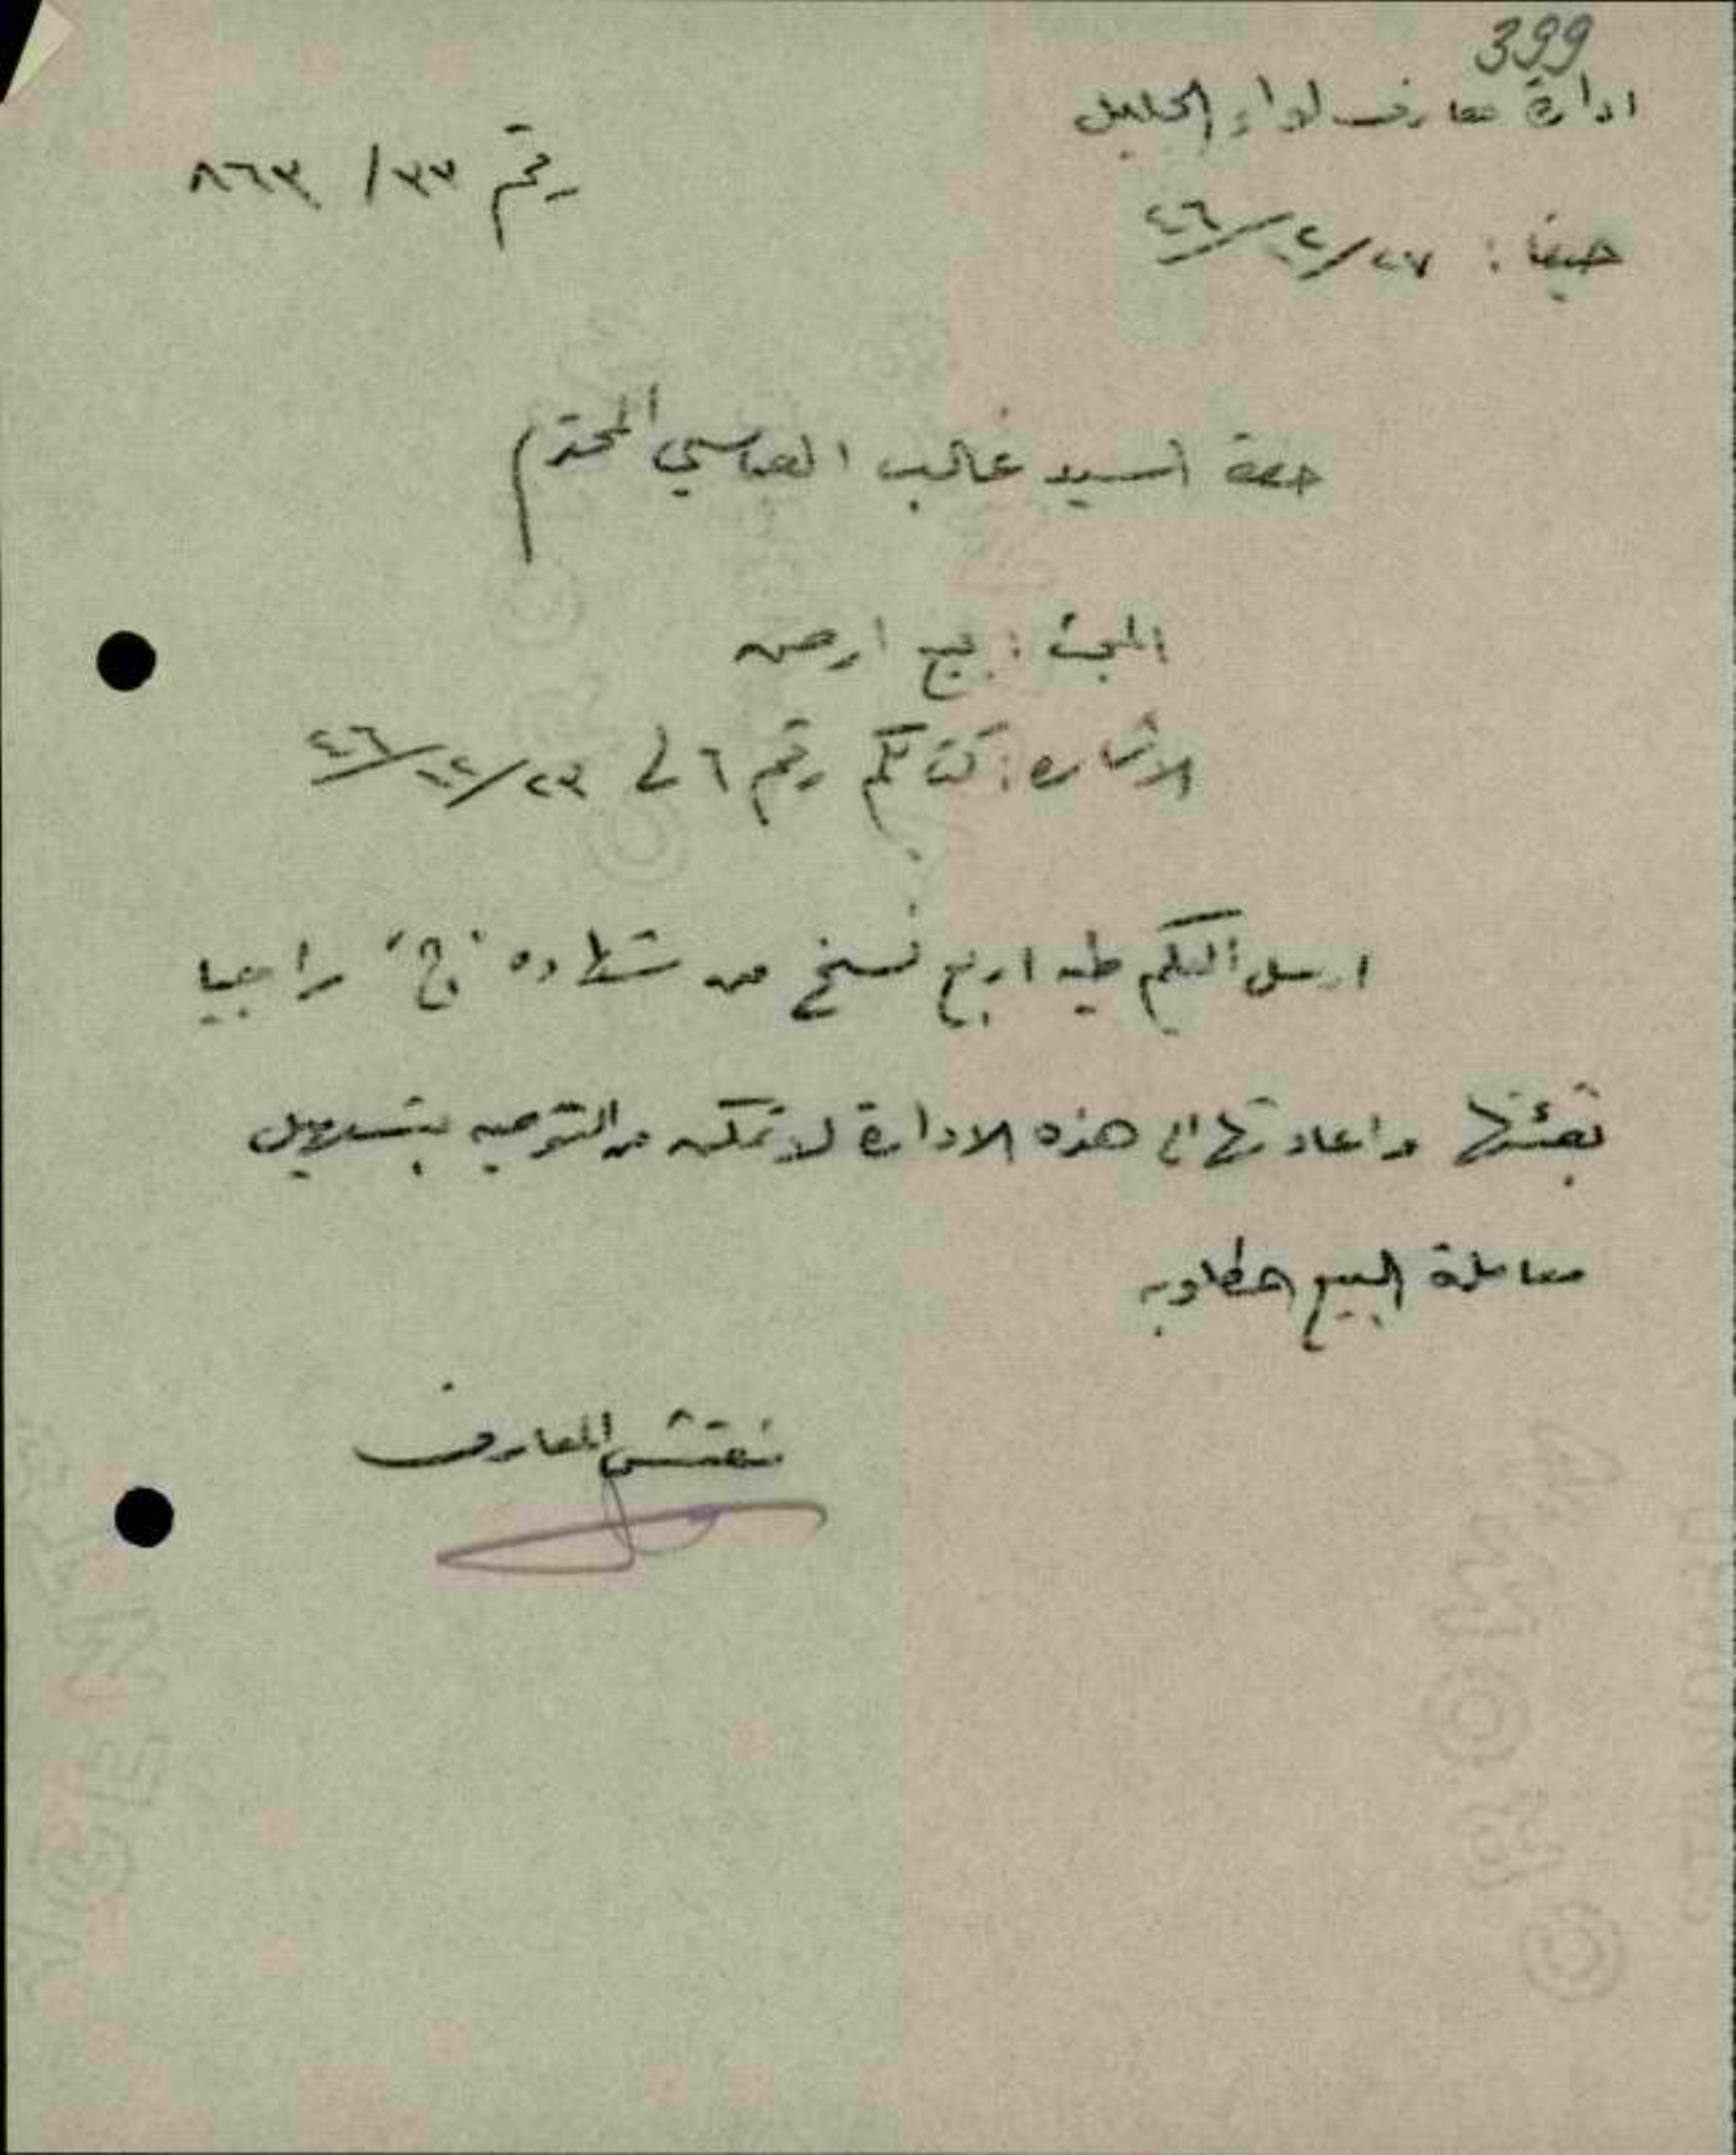 399
ادارة معارف لواء الجليل
رقم ٣٣/ ٨٦٣
حيفا : ٢٧/١٢/٤٦
حضرة السيد غالب العباسي المحترم
المبحث : بيع ارض
الاشارة : كتابكم رقم ٦ في ٢٣/١٢/٤٦
ارسل اليكم طيه اربع نسخ من شهادة "ج" راجيا
تعبئتها واعادتها الى هذه الادارة لاتمكن من التوصيه بتسهيل
معاملة البيع المطلوبه
مفتش المعارف